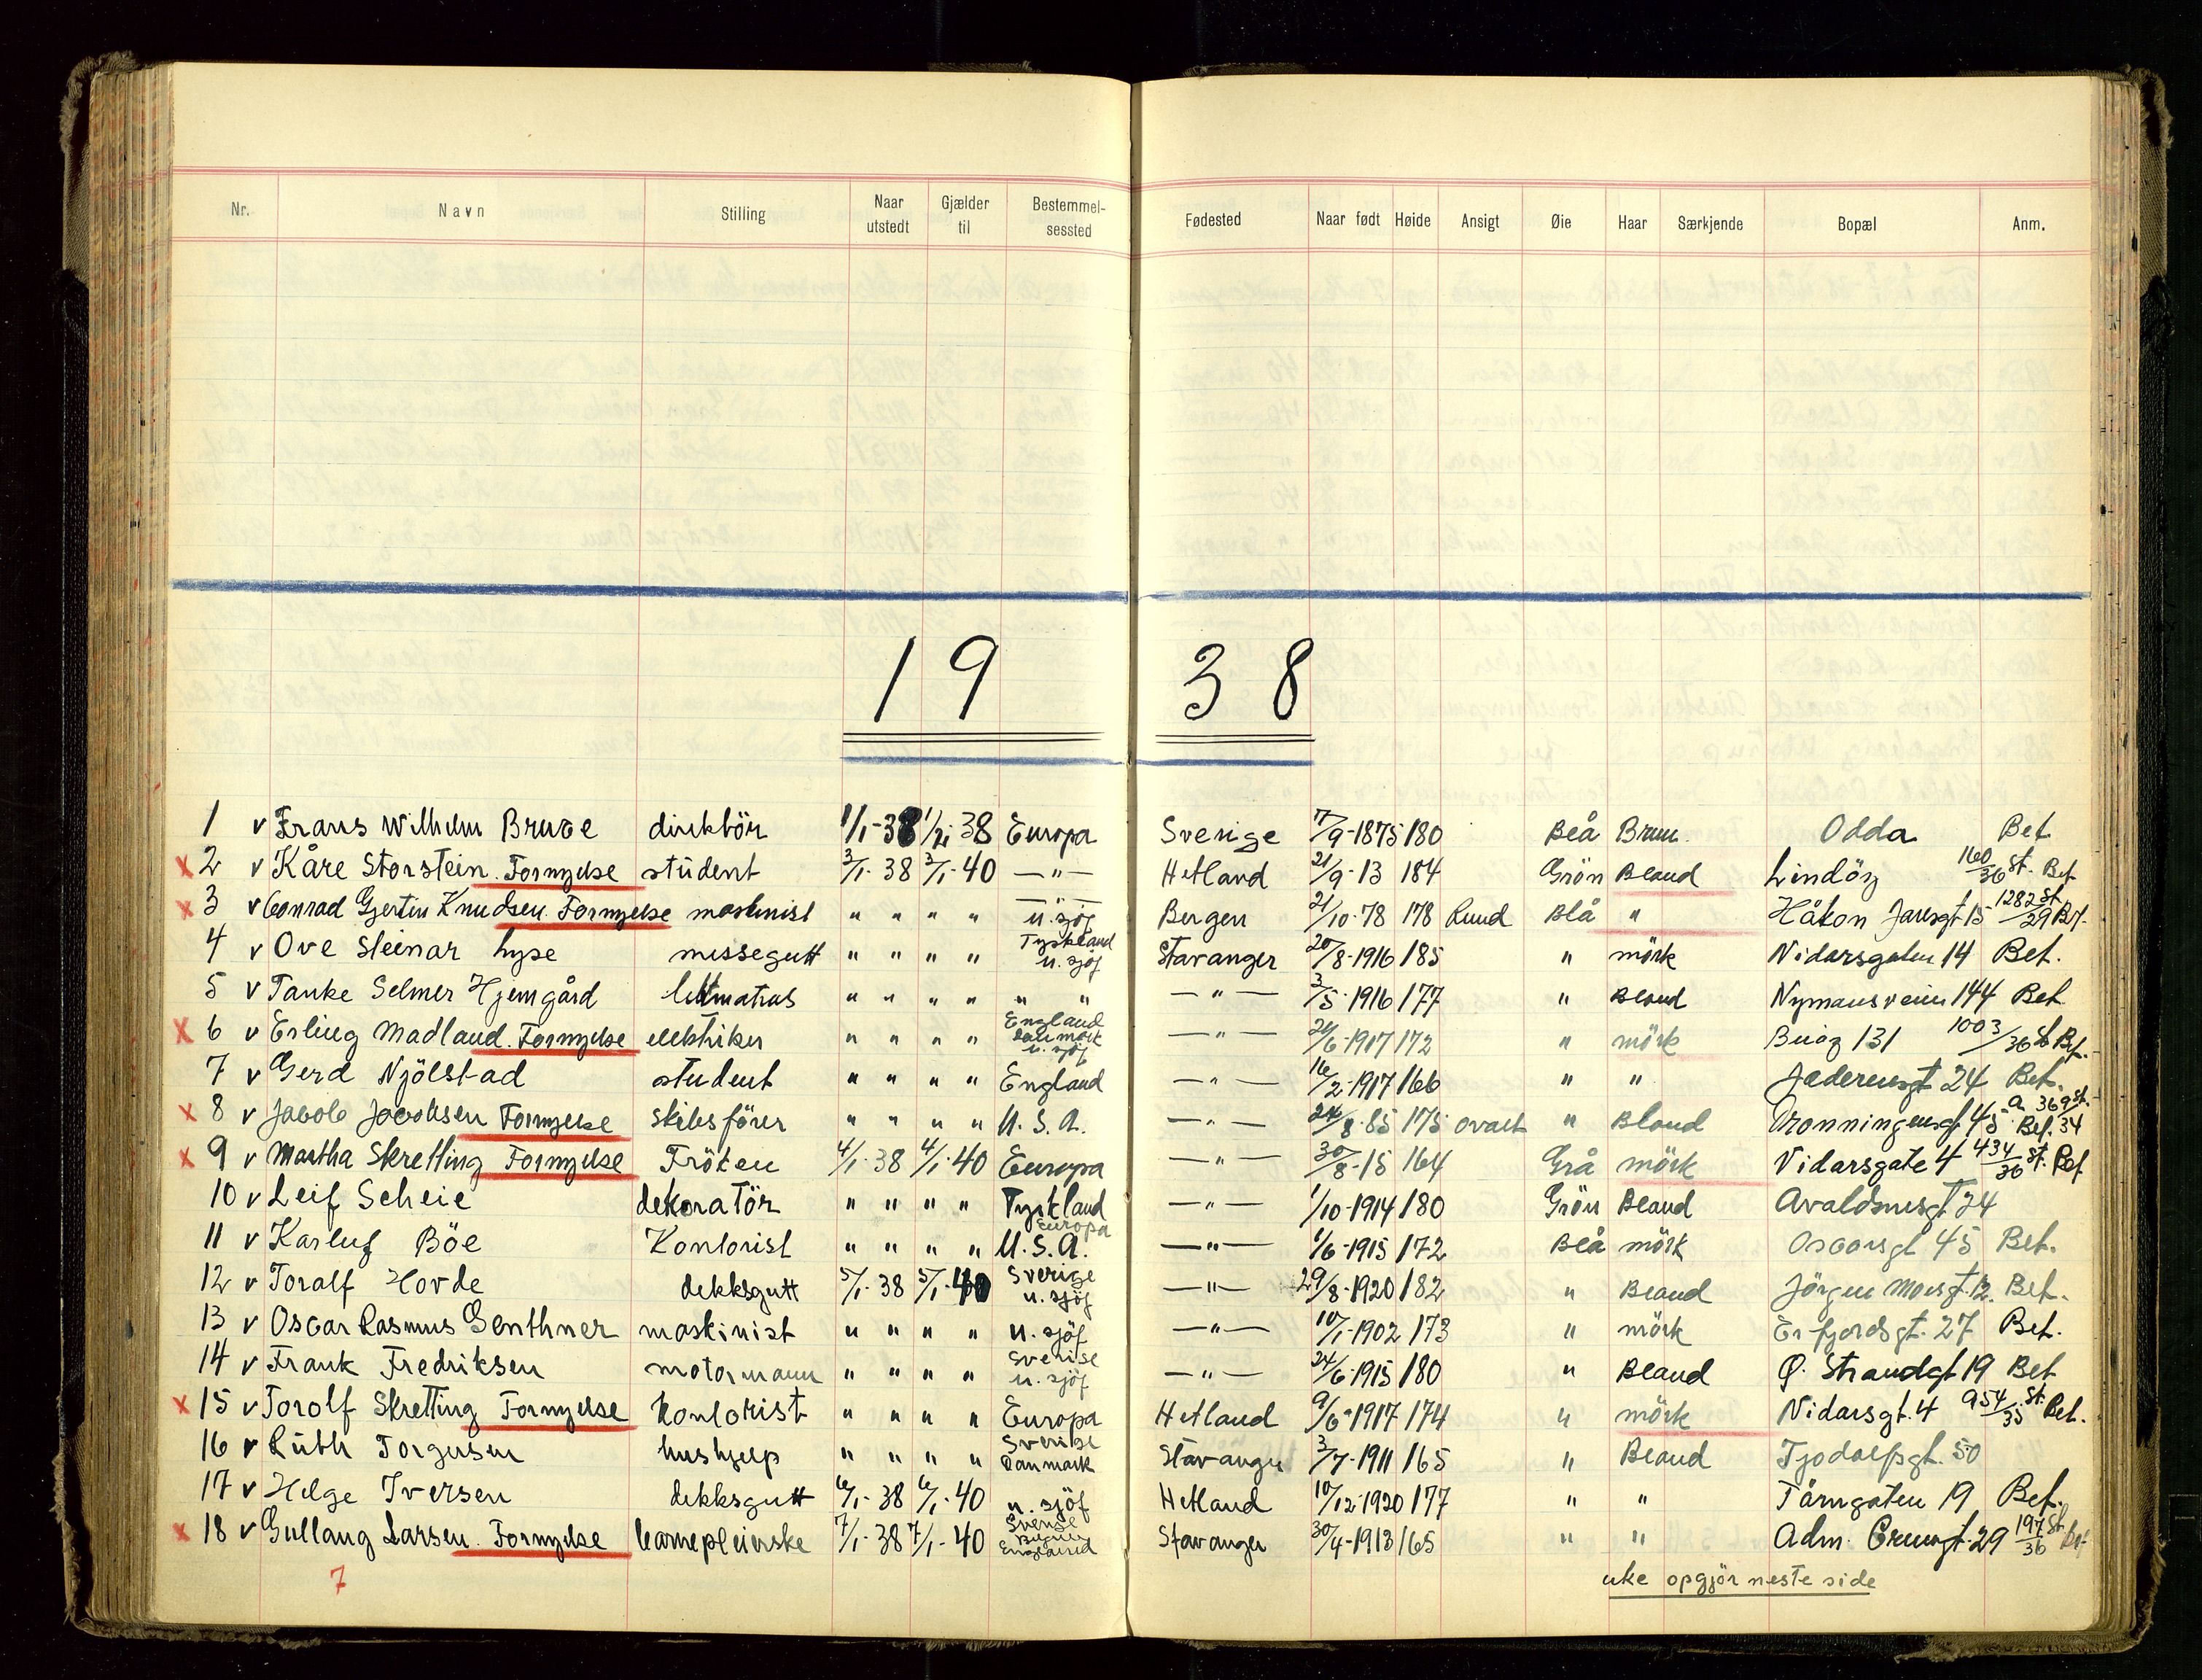 Nr. Navn Stilling Naar utstedt Gjælder til Bestemmel-sessted Fødested Naar født Høide Ansigt Øie Haar Særkjende Bopæl Anm.
19 38
1 v Frans Wilhelm Bruce direktör 1/1-38 1/2-38 Europa Sverige 7/9-1875 180 Blå Brun. Odda Bet
x 2 v Kåre Storstein. Fornyelse student 3/1-38 3/1-40 —"— Hetland 21/9-13 184 Grön Blond Lindöy 160/36 St. Bet
x 3 v Conrad Gjertin Knudsen. Fornyelse maskinist " " " " —"— u. sjöf Bergen 21/10-78 178 Rund Blå " Håkon Jarlsgt 15 1282/29 St. Bet.
4 v Ove Steinar Lyse messegutt " " " " Tyskland u. sjöf Stavanger 20/8-1916 185 " mörk Nidarsgaten 14 Bet.
5 v Tanke Selmer Hjemgård lettmatros " " " " " " —"— 3/5-1916 177 " Blond Nymansveien 144 Bet
x 6 v Erling Madland. Fornyelse elektriker " " " " England Danmark u. sjöf —"— 24/6-1917 172 " mörk Buöy 131 1003/36 St Bet.
7 v Gerd Njölstad student " " " " England —"— 16/2-1917 166 " " Jaderensgt 24 Bet.
x 8 v Jacob Jacobsen Fornyelse skibsförer " " " " U.S.A. —"— 24/8-85 175 ovalt " Blond Dronningensgt 45 a 369 St. Bet. 34
x 9 v Martha Skretting Fornyelse Fröken 4/1-38 4/1-40 Europa —"— 30/8-15 164 Grå mörk Vidarsgate 4 434/36 St. Bet
10 v Leif Scheie dekoratör " " " " Tyskland —"— 1/10-1914 180 Grön Blond Avaldsnesgt 24
11 v Karluf Böe Kontorist " " " " Europa U.S.A. —"— 1/6-1915 172 Blå mörk Oscarsgt 45 Bet.
12 v Toralf Hovde dekksgutt 5/1-38 5/1-40 Sverige u. sjöf —"— 29/8-1920 182 " Blond Jörgen Moesgt. 12. Bet.
13 v Oscar Rasmus Genthner maskinist " " " " u. sjöf —"— 10/1-1902 173 " mörk Erfjordsgt. 27 Bet.
14 v Frank Fredriksen motormann " " " " Sverige u. sjöf —"— 24/6-1915 180 " Blond Ö. Strandgt 19 Bet
x 15 v Torolf Skretting Fornyelse kontorist " " " " Europa Hetland 9/6-1917 174 " mörk Nidarsgt. 4 954/35 St. Bet.
16 v Ruth Torgersen hushjelp " " " " Sverige Danmark Stavanger 3/7-1911 165 " Blond Tjodolfsgt. 50
17 v Helge Iversen dekksgutt 6/1-38 6/1-40 u. sjöf Hetland 10/12-1920 177 " " Tårngaten 19 Bet.
x 18 v Gullaug Larsen. Fornyelse barnepleierske 7/1-38 7/1-40 England Stavanger 30/4-1913 165 " " Adm. Cruysgt. 29 197/36 St. Bet
7
uke opgjör neste side